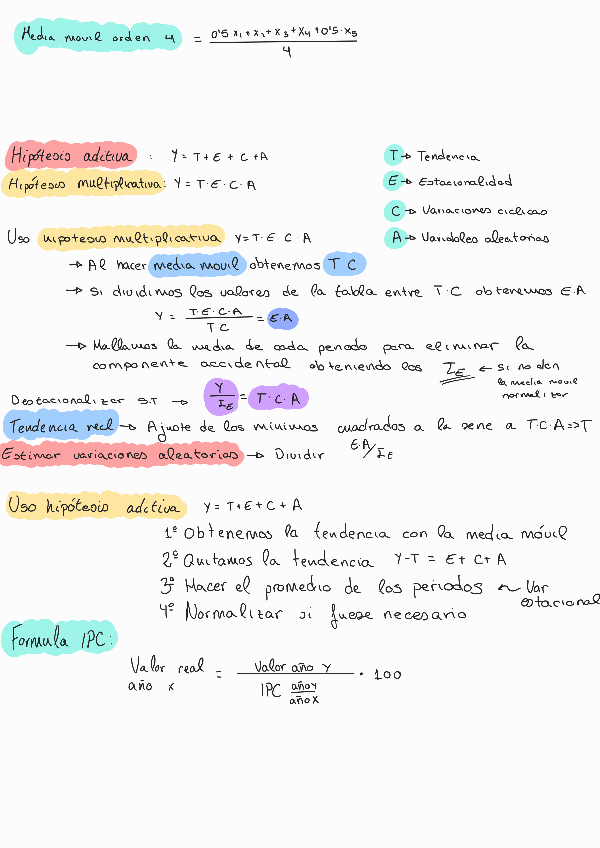 Media movil orden 4 = 0'5 x₁ + x₂ + x₃ + x₄ + 0'5 · x₅ / 4
Hipótesis aditiva : Y = T + E + C + A
T → Tendencia
Hipótesis multiplicativa: Y = T · E · C · A
E → Estacionalidad
C → Variaciones ciclicas
Uso hipotesis multiplicativa Y = T · E C A
A → Variables aleatorias
→ Al hacer media movil obtenemos T C
→ Si dividimos los valores de la tabla entre T · C obtenemos E.A
Y = T · E · C · A / T C = E · A
→ Hallamos la media de cada periodo para eliminar la
componente accidental obteniendo los I_E ← Si no den
la media movil
normalizar
Destacionalizar S.T → Y / I_E = T · C · A
Tendencia real → Ajuste de los minimos cuadrados a la serie a T·C·A => T
Estimar variaciones aleatorias → Dividir E·A / I_E
Uso hipótesis aditiva Y = T + E + C + A
1º Obtenemos la tendencia con la media móvil
2º Quitamos la tendencia Y - T = E + C + A
3º Hacer el promedio de los periodos ~ Var
estacional
4º Normalizar si fuese necesario
Formula IPC:
Valor real año x = Valor año y / IPC año y / año x · 100